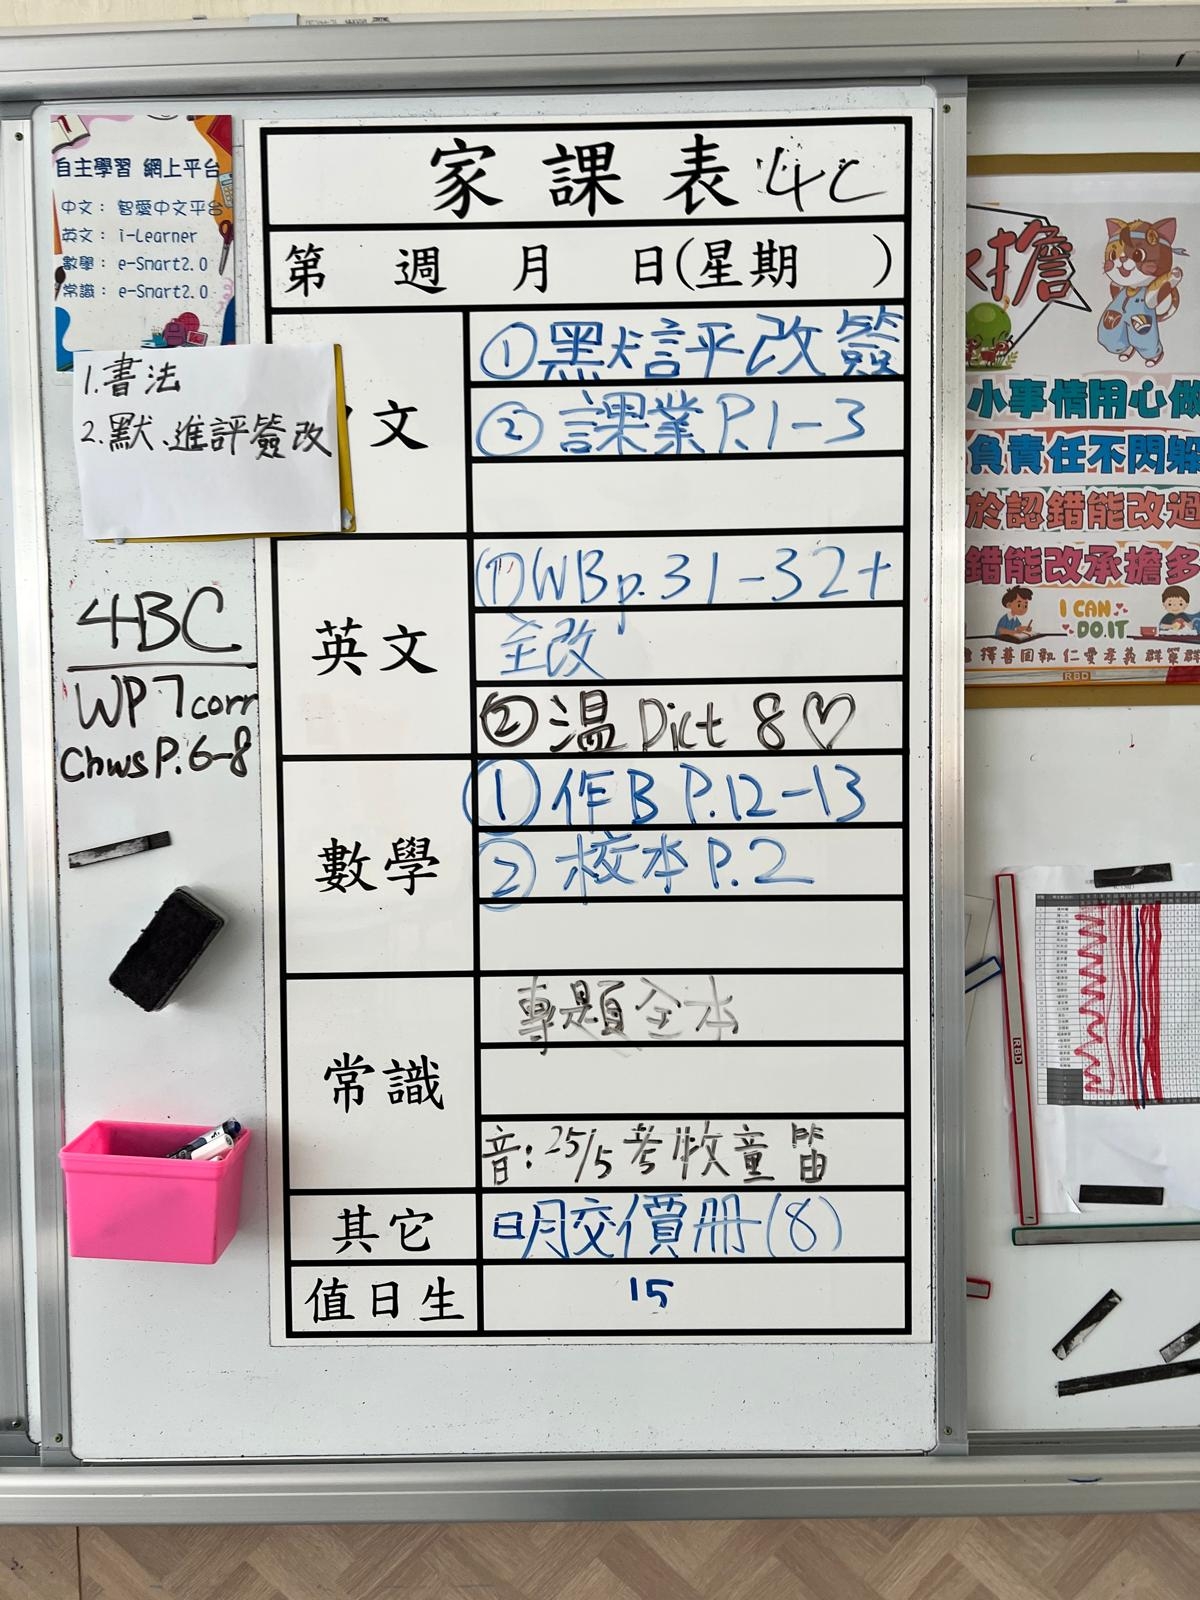 家課表 4C
第 週 月 日(星期 )
自主學習 網上平台
中文： 智愛中文平台
英文： i-Learner
數學： e-Smart2.0
常識： e-Smart2.0
1.書法
2.默、進評簽改
文
①默評改簽
② 課業P.1-3
4BC
WP7corr
ChwsP.6-8
英文
①WBp.31-32+
全改
②溫 Dict 8♡
數學
①作B P.12-13
② 校本P.2
常識
專題全本
音: 25/5 考牧童笛
其它
明交價冊(8)
值日生
15
擔
小事情用心做
負責任不閃躲
於認錯能改過
錯能改承擔多
I CAN
DO IT
擇善固執 仁愛孝義
RBD
RBD